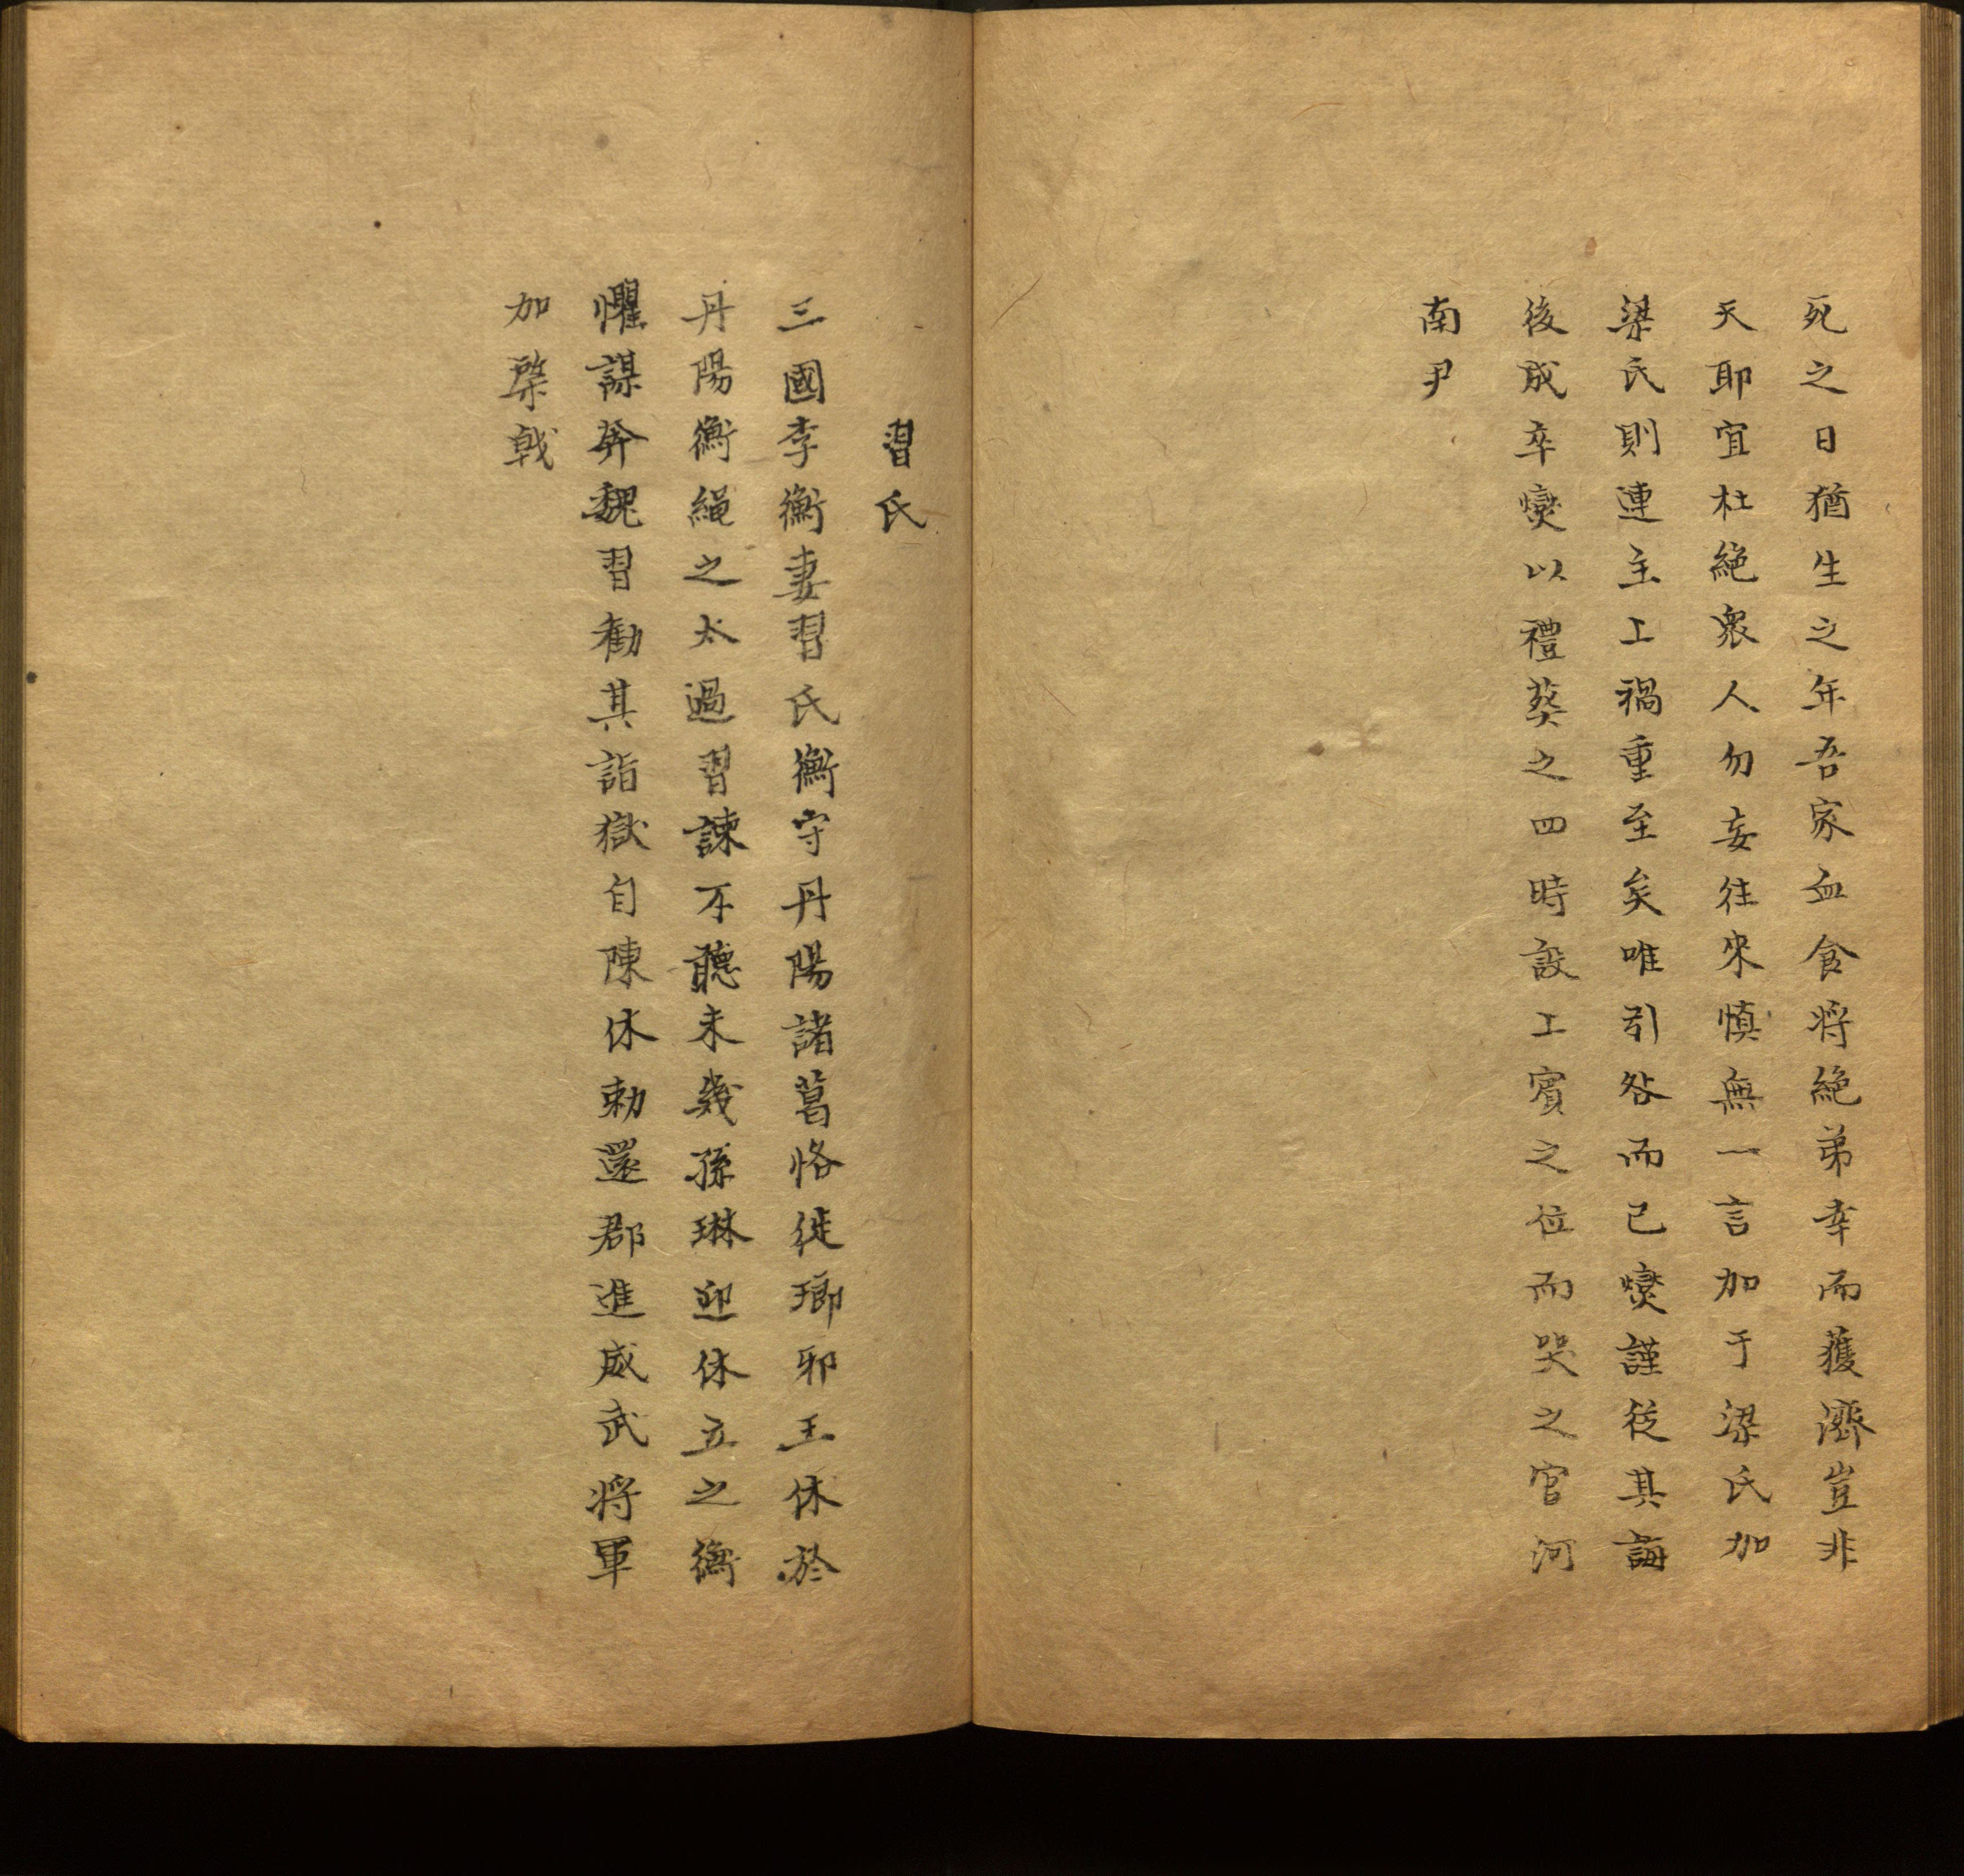 死之日猶生之年吾家血食将絶弟幸而獲濟豈非
天耶宜杜絶衆人勿妄往來慎無一言加于梁氏加
梁氏則連主上禍重至矣唯引咎而已燮謹従其誨
後成卒燮以禮葵之四時設上賓之位而哭之官河
南尹
習氏
三國李衡妻習氏衡守丹陽諸葛恪徙瑯邪王休於
丹陽衡繩之太過習諫不聽未幾孫琳迎休立之衡
懼謀奔魏習勸其詣獄自陳休勅還郡進威武将軍
加棨戟